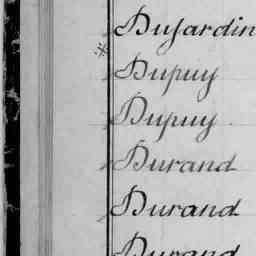 Dujardin
Dupuy
Dupuy
Durand
Durand
Durand